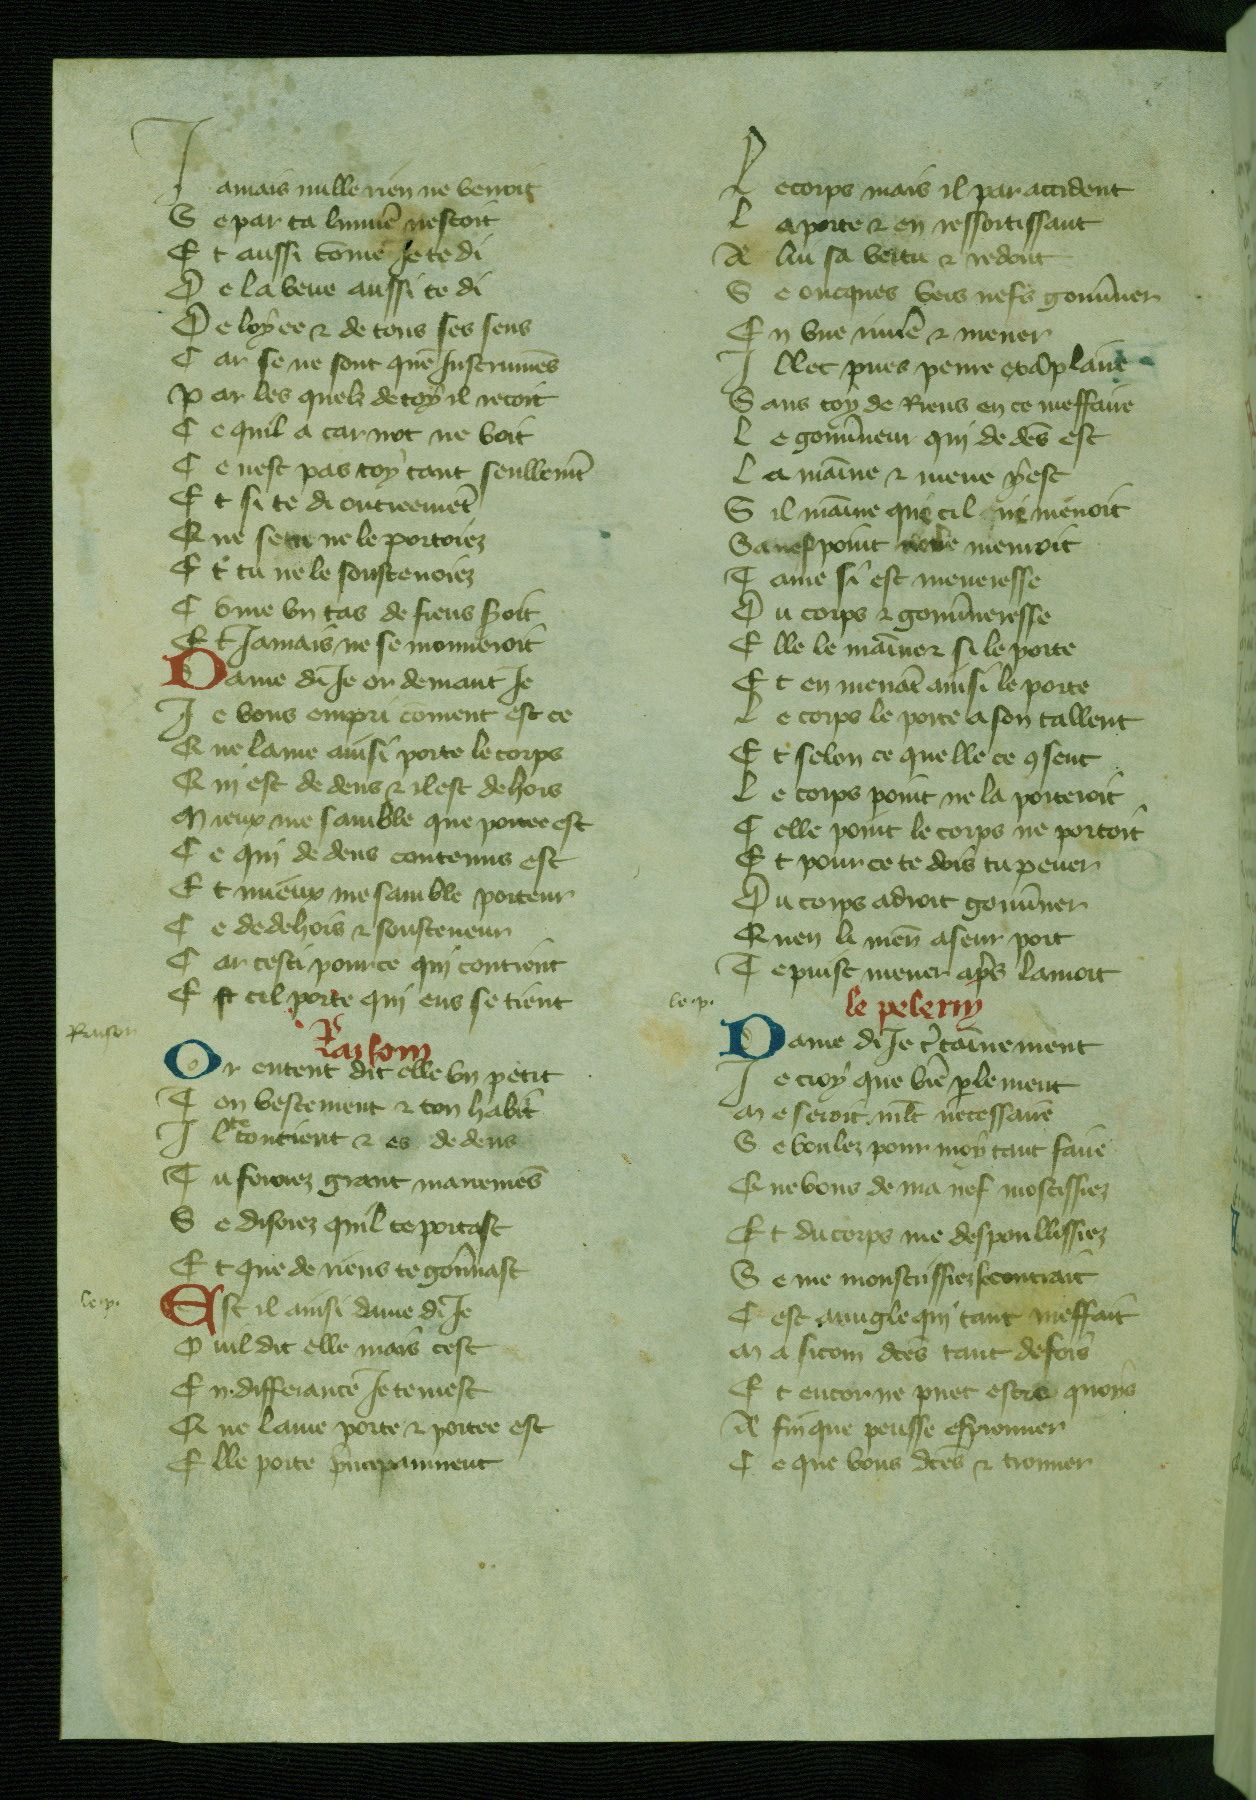 Jamais nulle rien ne verroit
Se par ta lumie͞ nestoit
Et aussi co͞me Je te di
De la veue aussi te di
De loyee ⁊ de tous ses sens
Car se ne sont que͞ Instrume͞s
Par les quelz de toy il recoit
Ce quil a car not ne voit
Ce nest pas toy tant seullem͞t
Et si te di oultreeme͞t
Que se tu ne le portoiez
Et tu ne le soustenoiez
Co͞me vn tas de fiens s'oit
Et Jamais ne se mouueroit
Dame di Je or demant Je
Je vous empri co͞ment est ce
Que lame ainsi porte le corps
Qui est de dens ⁊ il est dehors
Mieux me samble que portee est
Ce qui de dens contenus est
Et mieux me samble porteur
Ce de dehors ⁊ sousteneur
Car cesti pource qui contient
Est cil porte qui ens se tient
Raison
Raison
Or entent dit elle vn petit
Ton vestement ⁊ ton habit
Il te contient ⁊ es de dens
Tu feroiez grant maneme͞s
Se disoiez quil te portast
Et que de riens te gou͞nast
le .p.
Est il ainsi dame di Je
Ouil dit elle mais cest
En differance Je temest
Que lame porte ⁊ portee est
Elle porte p͞ncepaument
Le corps mais il par accident
La porte ⁊ en ressortissant
A lui sa vertu ⁊ redont
Se oncques veis nefs gouu͞ner
En vne riuie͞ ⁊ mener
Illec pues penre exa͞plaire
Sans toy de Riens en ce meffaire
Le gouu͞neur qui de de͞s est
La mai͞ne ⁊ mene y est
Sil mai͞ne que cil ne menoit
Sa nef point ne le menroit
Tame si est meneresse
Du corps ⁊ gouu͞neresse
Elle le mai͞ne ⁊ si le porte
Et en mena͞t ainsi le porte
Le corps le porte a son tallent
Et selon ce quelle ce ꝯsent
Le corps point ne la porteroit
Celle point le corps ne portoit
Et pour ce te dois tu pener
Du corps adroit gouu͞ner
Quen li men͞ a seur port
Te puist mener ap͞s la mort
le .p.
le pelerin
Dame di Je c͛tai͞nement
Je croy que bie͞ p͞lement
Me seroit ml͞t necessaire
Se voulez pour moy tant faire
Que vous de ma nef mostissiez
Et du corps me despoullissiez
Se me monstrissiez le contrait
Cest auugle qui tant meffait
Ma si com dc͞es tant de fois
Et encor ne p͞uet estre quoys
A fin que peusse esprouuer
Ce que vous dc͞es ⁊ trouuer